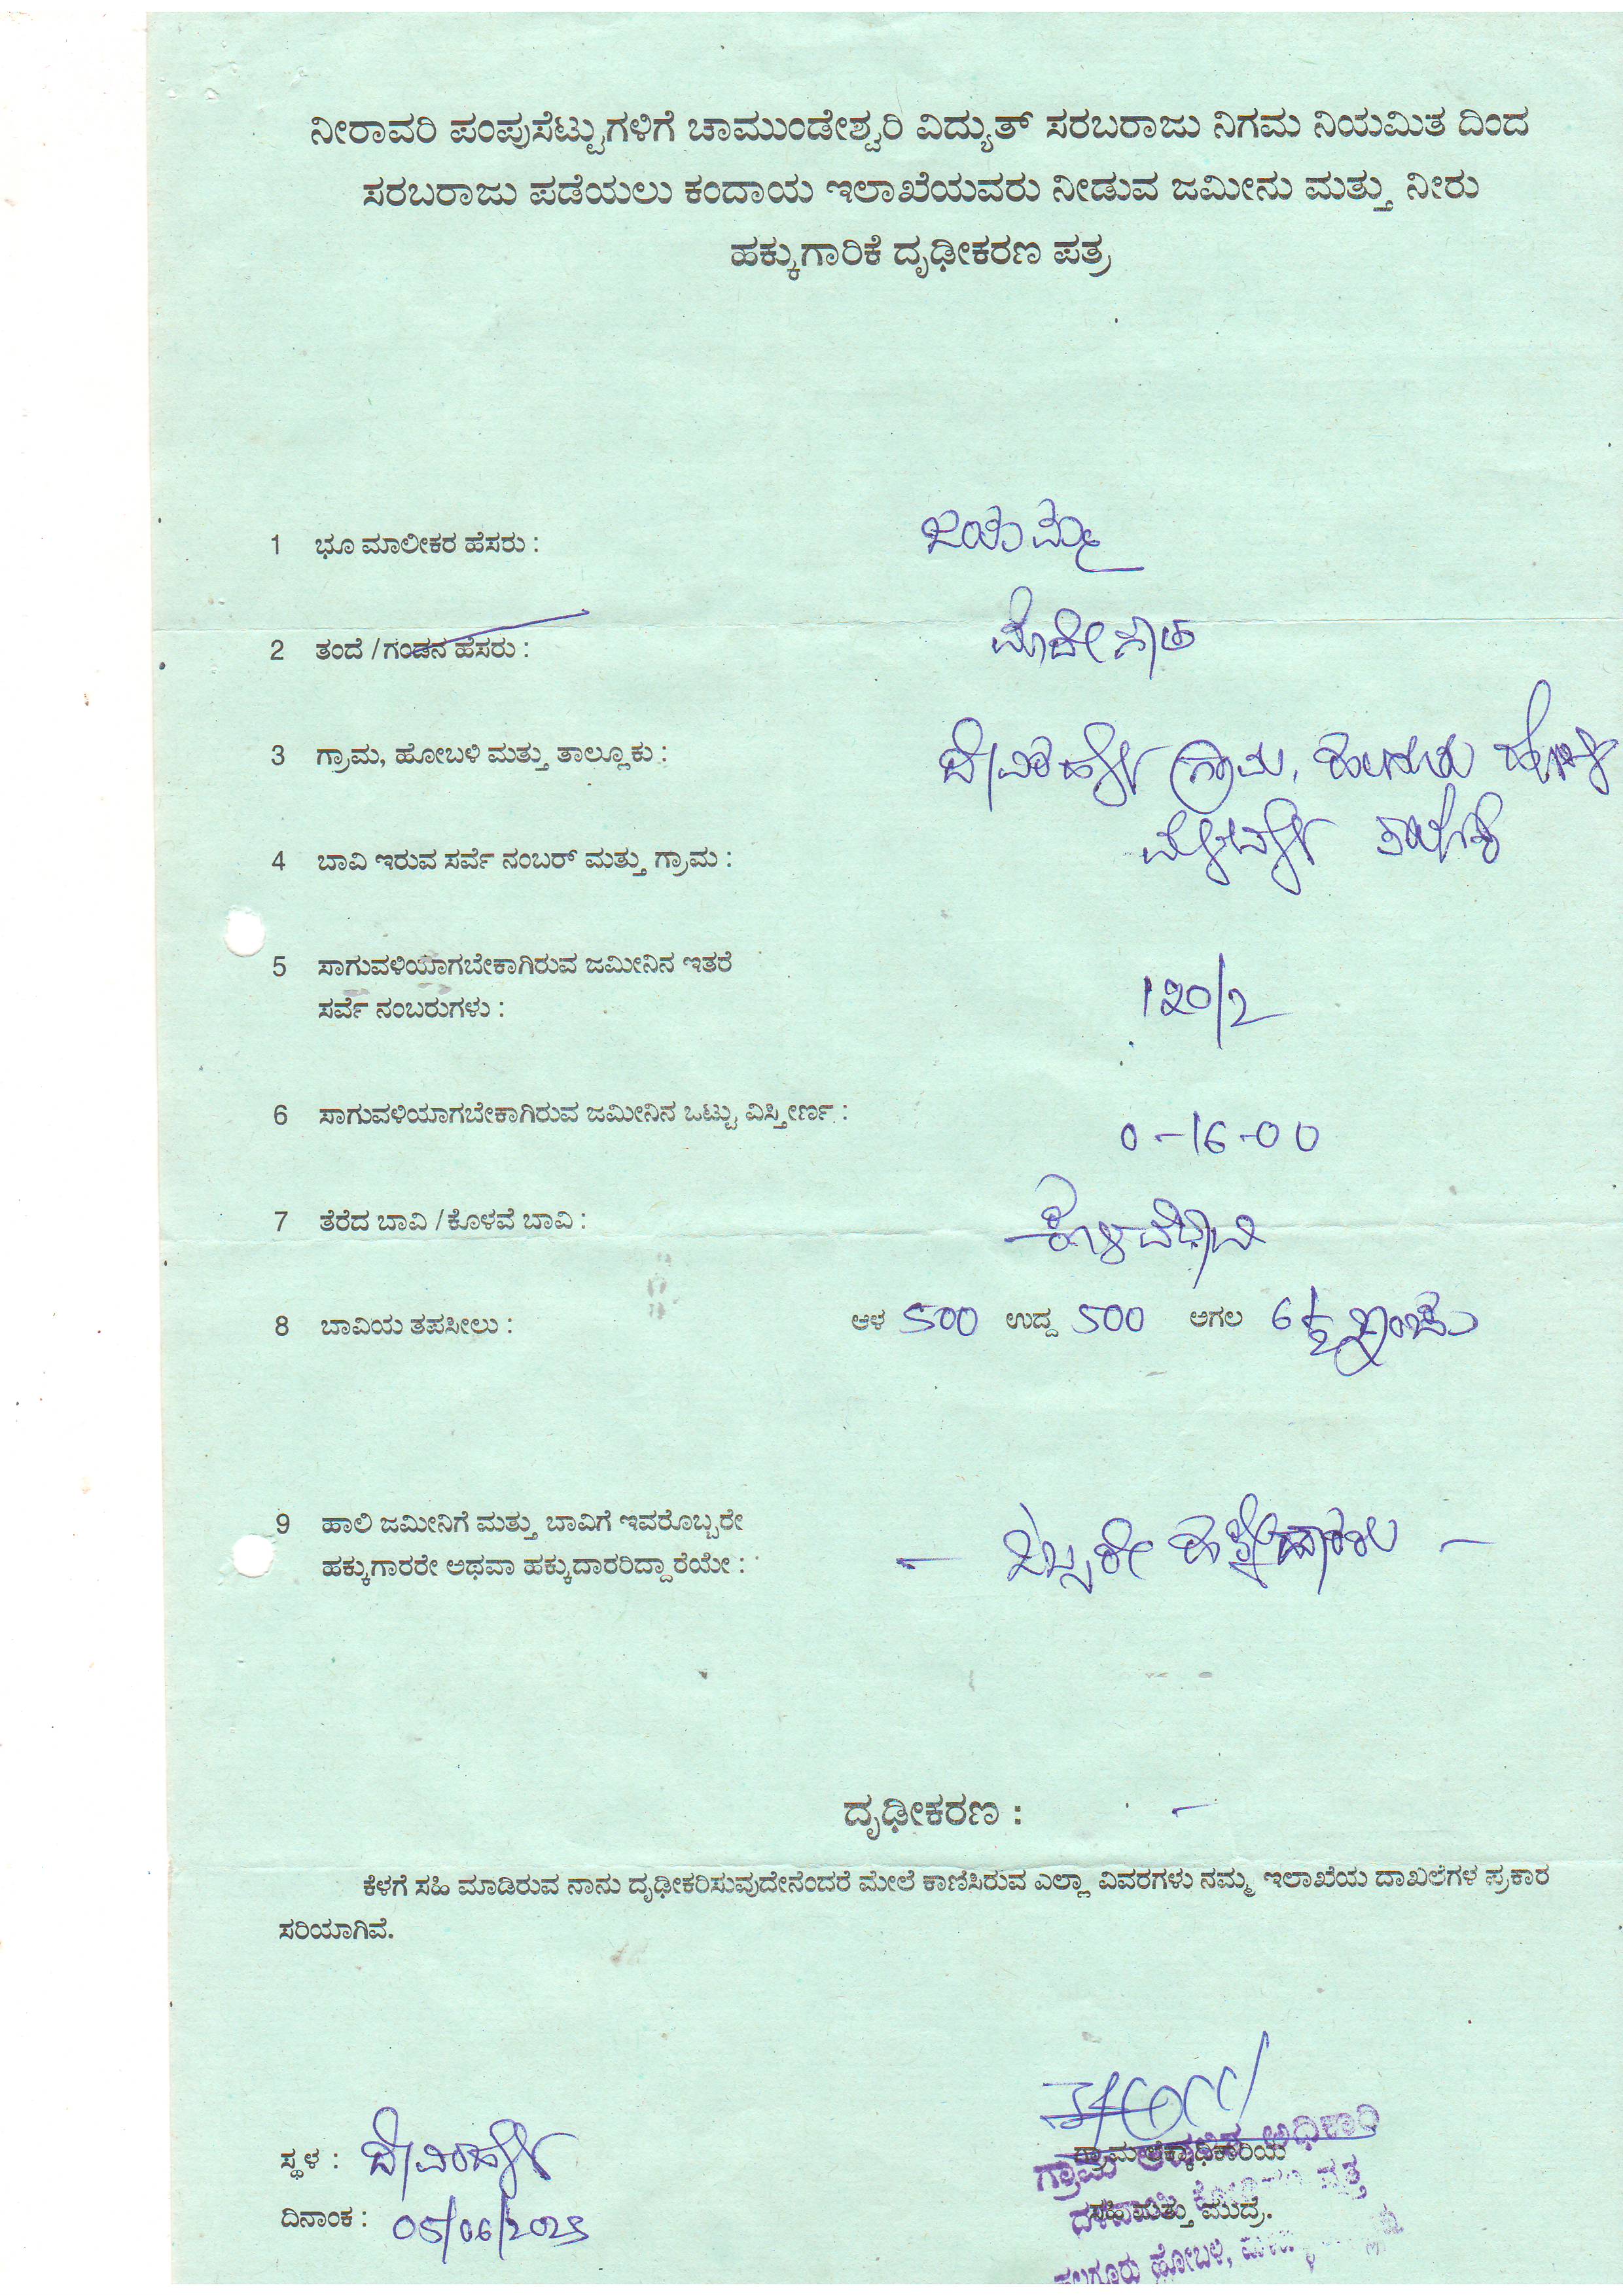 ನೀರಾವರಿ ಪಂಪುಸೆಟ್ಟುಗಳಿಗೆ ಚಾಮುಂಡೇಶ್ವರಿ ವಿದ್ಯುತ್ ಸರಬರಾಜು ನಿಗಮ ನಿಯಮಿತ ದಿಂದ
ಸರಬರಾಜು ಪಡೆಯಲು ಕಂದಾಯ ಇಲಾಖೆಯವರು ನೀಡುವ ಜಮೀನು ಮತ್ತು ನೀರು
ಹಕ್ಕುಗಾರಿಕೆ ದೃಢೀಕರಣ ಪತ್ರ
1 ಭೂ ಮಾಲೀಕರ ಹೆಸರು : ಜಯಮ್ಮ
2 ತಂದೆ / ಗಂಡನ ಹೆಸರು :
3 ಗ್ರಾಮ, ಹೋಬಳಿ ಮತ್ತು ತಾಲ್ಲೂಕು : ಗ್ರಾಮ, ಹಲಗೂರು ಹೋಬಳಿ
ಮಳವಳ್ಳಿ ತಾಲ್ಲೂಕು
4 ಬಾವಿ ಇರುವ ಸರ್ವೆ ನಂಬರ್ ಮತ್ತು ಗ್ರಾಮ :
5 ಸಾಗುವಳಿಯಾಗಬೇಕಾಗಿರುವ ಜಮೀನಿನ ಇತರೆ
ಸರ್ವೆ ನಂಬರುಗಳು : 120/2
6 ಸಾಗುವಳಿಯಾಗಬೇಕಾಗಿರುವ ಜಮೀನಿನ ಒಟ್ಟು ವಿಸ್ತೀರ್ಣ : 0-16-00
7 ತೆರೆದ ಬಾವಿ / ಕೊಳವೆ ಬಾವಿ : ಕೊಳವೆಬಾವಿ
8 ಬಾವಿಯ ತಪಸೀಲು : ಆಳ 500 ಉದ್ದ 500 ಅಗಲ 6½ ಇಂಚು
9 ಹಾಲಿ ಜಮೀನಿಗೆ ಮತ್ತು ಬಾವಿಗೆ ಇವರೊಬ್ಬರೇ
ಹಕ್ಕುಗಾರರೇ ಅಥವಾ ಹಕ್ಕುದಾರರಿದ್ದಾರೆಯೇ : – ಒಬ್ಬರೇ ಹಕ್ಕುದಾರರು –
ದೃಢೀಕರಣ :
ಕೆಳಗೆ ಸಹಿ ಮಾಡಿರುವ ನಾನು ದೃಢೀಕರಿಸುವುದೇನೆಂದರೆ ಮೇಲೆ ಕಾಣಿಸಿರುವ ಎಲ್ಲಾ ವಿವರಗಳು ನಮ್ಮ ಇಲಾಖೆಯ ದಾಖಲೆಗಳ ಪ್ರಕಾರ
ಸರಿಯಾಗಿವೆ.
ಗ್ರಾಮ ಆಡಳಿತ ಅಧಿಕಾರಿ
ಸ್ಥಳ : ಗ್ರಾಮಲೆಕ್ಕಾಧಿಕಾರಿಯ
ವೃತ್ತ
ದಿನಾಂಕ : 05/06/2025 ಸಹಿ ಮತ್ತು ಮುದ್ರೆ.
ಹಲಗೂರು ಹೋಬಳಿ,